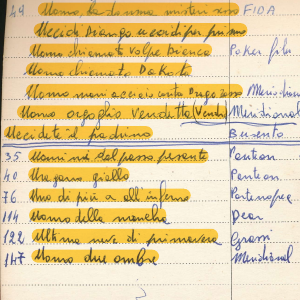 49 Uomo, la donna misteriosa FIDA
Uccidi Django uccidi per primo
Uomo chiamato Volpe Bianca Poker film
Uomo chiamato Dakota
Uomo mani acciaio contro Drago rosso Meridional
Uomo orgoglio vendetta (Vendo) Meridional
Uccidete il padrino Busento
35 Uomini dal passo pesante Panton
40 Uragano giallo Panton
76 Uno di più all'inferno Partenopea
114 Uomo della mancha Dear
122 Ultima neve di primavera Grassi
147 Uomo due ombre Meridional